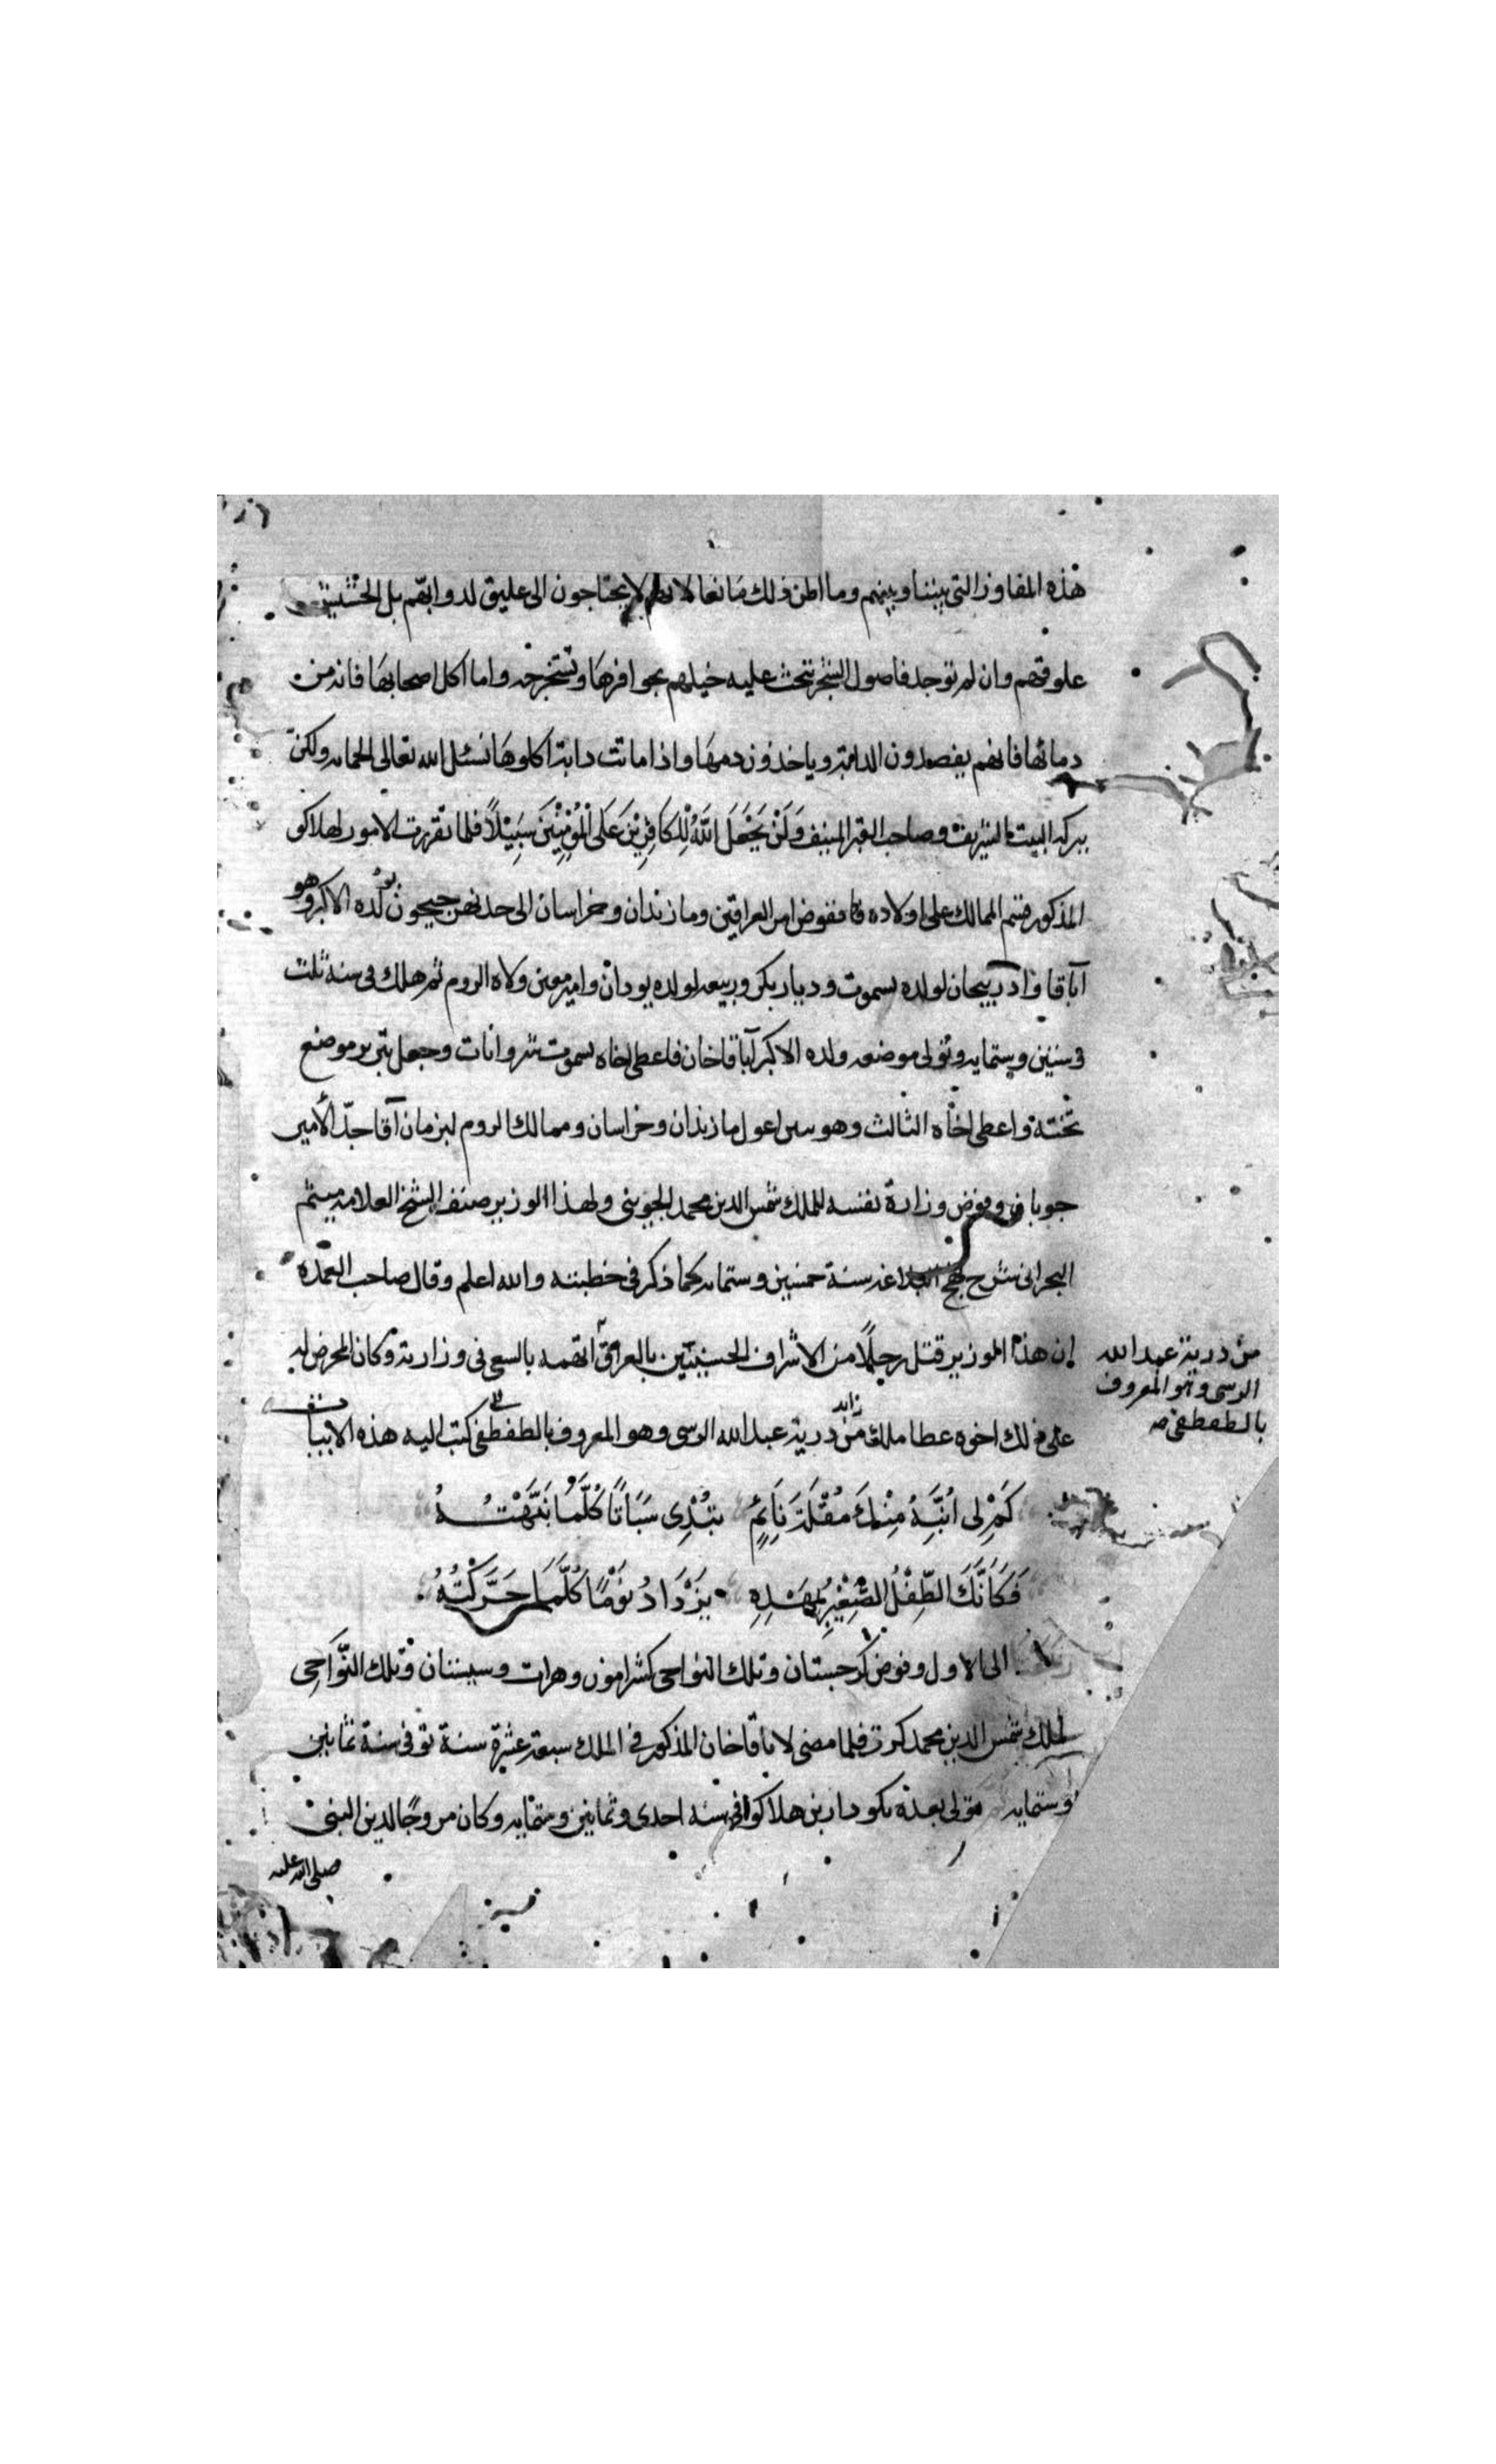 هذه المفاوز التي بيننا وبينهم وما اظن ذلك مانعا لانهم لا يحتاجون الى عليق لدوابهم بل الحشيش
علوفتهم وان لم توجد فاصول الشجر تبحث عليه خيلهم بحوافرها وتستخرجه واما اكل اصحابها فانه من
دمائها فانهم يفصدون الدابة وياخذون دمها واذا ماتت دابة اكلوها نسئل الله تعالى الحمايه ولكن
ببركه البيت الشريف وصاحب القبر المنيف وَلَنْ يَجْعَلَ اللَّهُ لِلْكَافِرِيْنَ عَلَى الْمُؤْمِنِيْنَ سَبِيْلًا فلما تقررت الامور لهلاكو
المذكور قسم الممالك على اولاده ففوض امر العراقين ومازندان وخراسان الى حد نهر جيحون لولده الاكبر وهو
آباقا واذربيجان لولده يسموت وديار بكر وربيعه لولده يودان وامير معين ولاه الروم ثم هلك في سنة ثلث
وستين وستمايه وتولى موضعه ولده الاكبر آباقا خان فاعطى اخاه يسموت شروانات وجعل تبريز موضع
تخته واعطى اخاه الثالث وهو مازندان وخراسان وممالك الروم آقا جدّ الأمير
جوبان وفوض وزارة نفسه للملك شمس الدين محمد الجويني ولهذا الوزير صنف الشيخ العلامه ميثم
البحراني شرح نهج البلاغه سنة خمسين وستمايه كما ذكر في خطبته والله اعلم وقال صاحب العمده
إن هذا الوزير قتل رجلًا من الاشراف الحسنيين بالعراق اتهمه بالسعي في وزارته وكان المحرض له
على ذلك اخوه عطا ملك من ذرية عبد الله الرسي وهو المعروف بالطقطقي كتب اليه هذه الابيات
زايد
من ذرية عبد الله
الرسي وهو المعروف
بالطقطقي صح
كَمْ لِى اُنَبِّهُ مِنْكَ مُقْلَةَ نَائِمٍ يُبْدِى سُبَاتًا كُلَّمَا نَبَّهْتُهُ
فَكَاَنَّكَ الطِّفْلُ الصَّغِيْرُ بِمَهْدِهِ يَزْدَادُ نَوْمًا كُلَّمَا حَرَّكْتُهُ
الى الاول وفوض كرجستان وتلك النواحي وهرات وسيستان وتلك النَّوَاحِي
لملك شمس الدين محمد كرت فلما مضى لاباقا خان المذكور في الملك سبعة عشرة سنة توفي سنة ثمانين
وستمايه فتولى بعده نكودار بن هلاكو في سنه احدى وثمانين وستمايه وكان مروجًا لدين النبي
صلى الله عليه